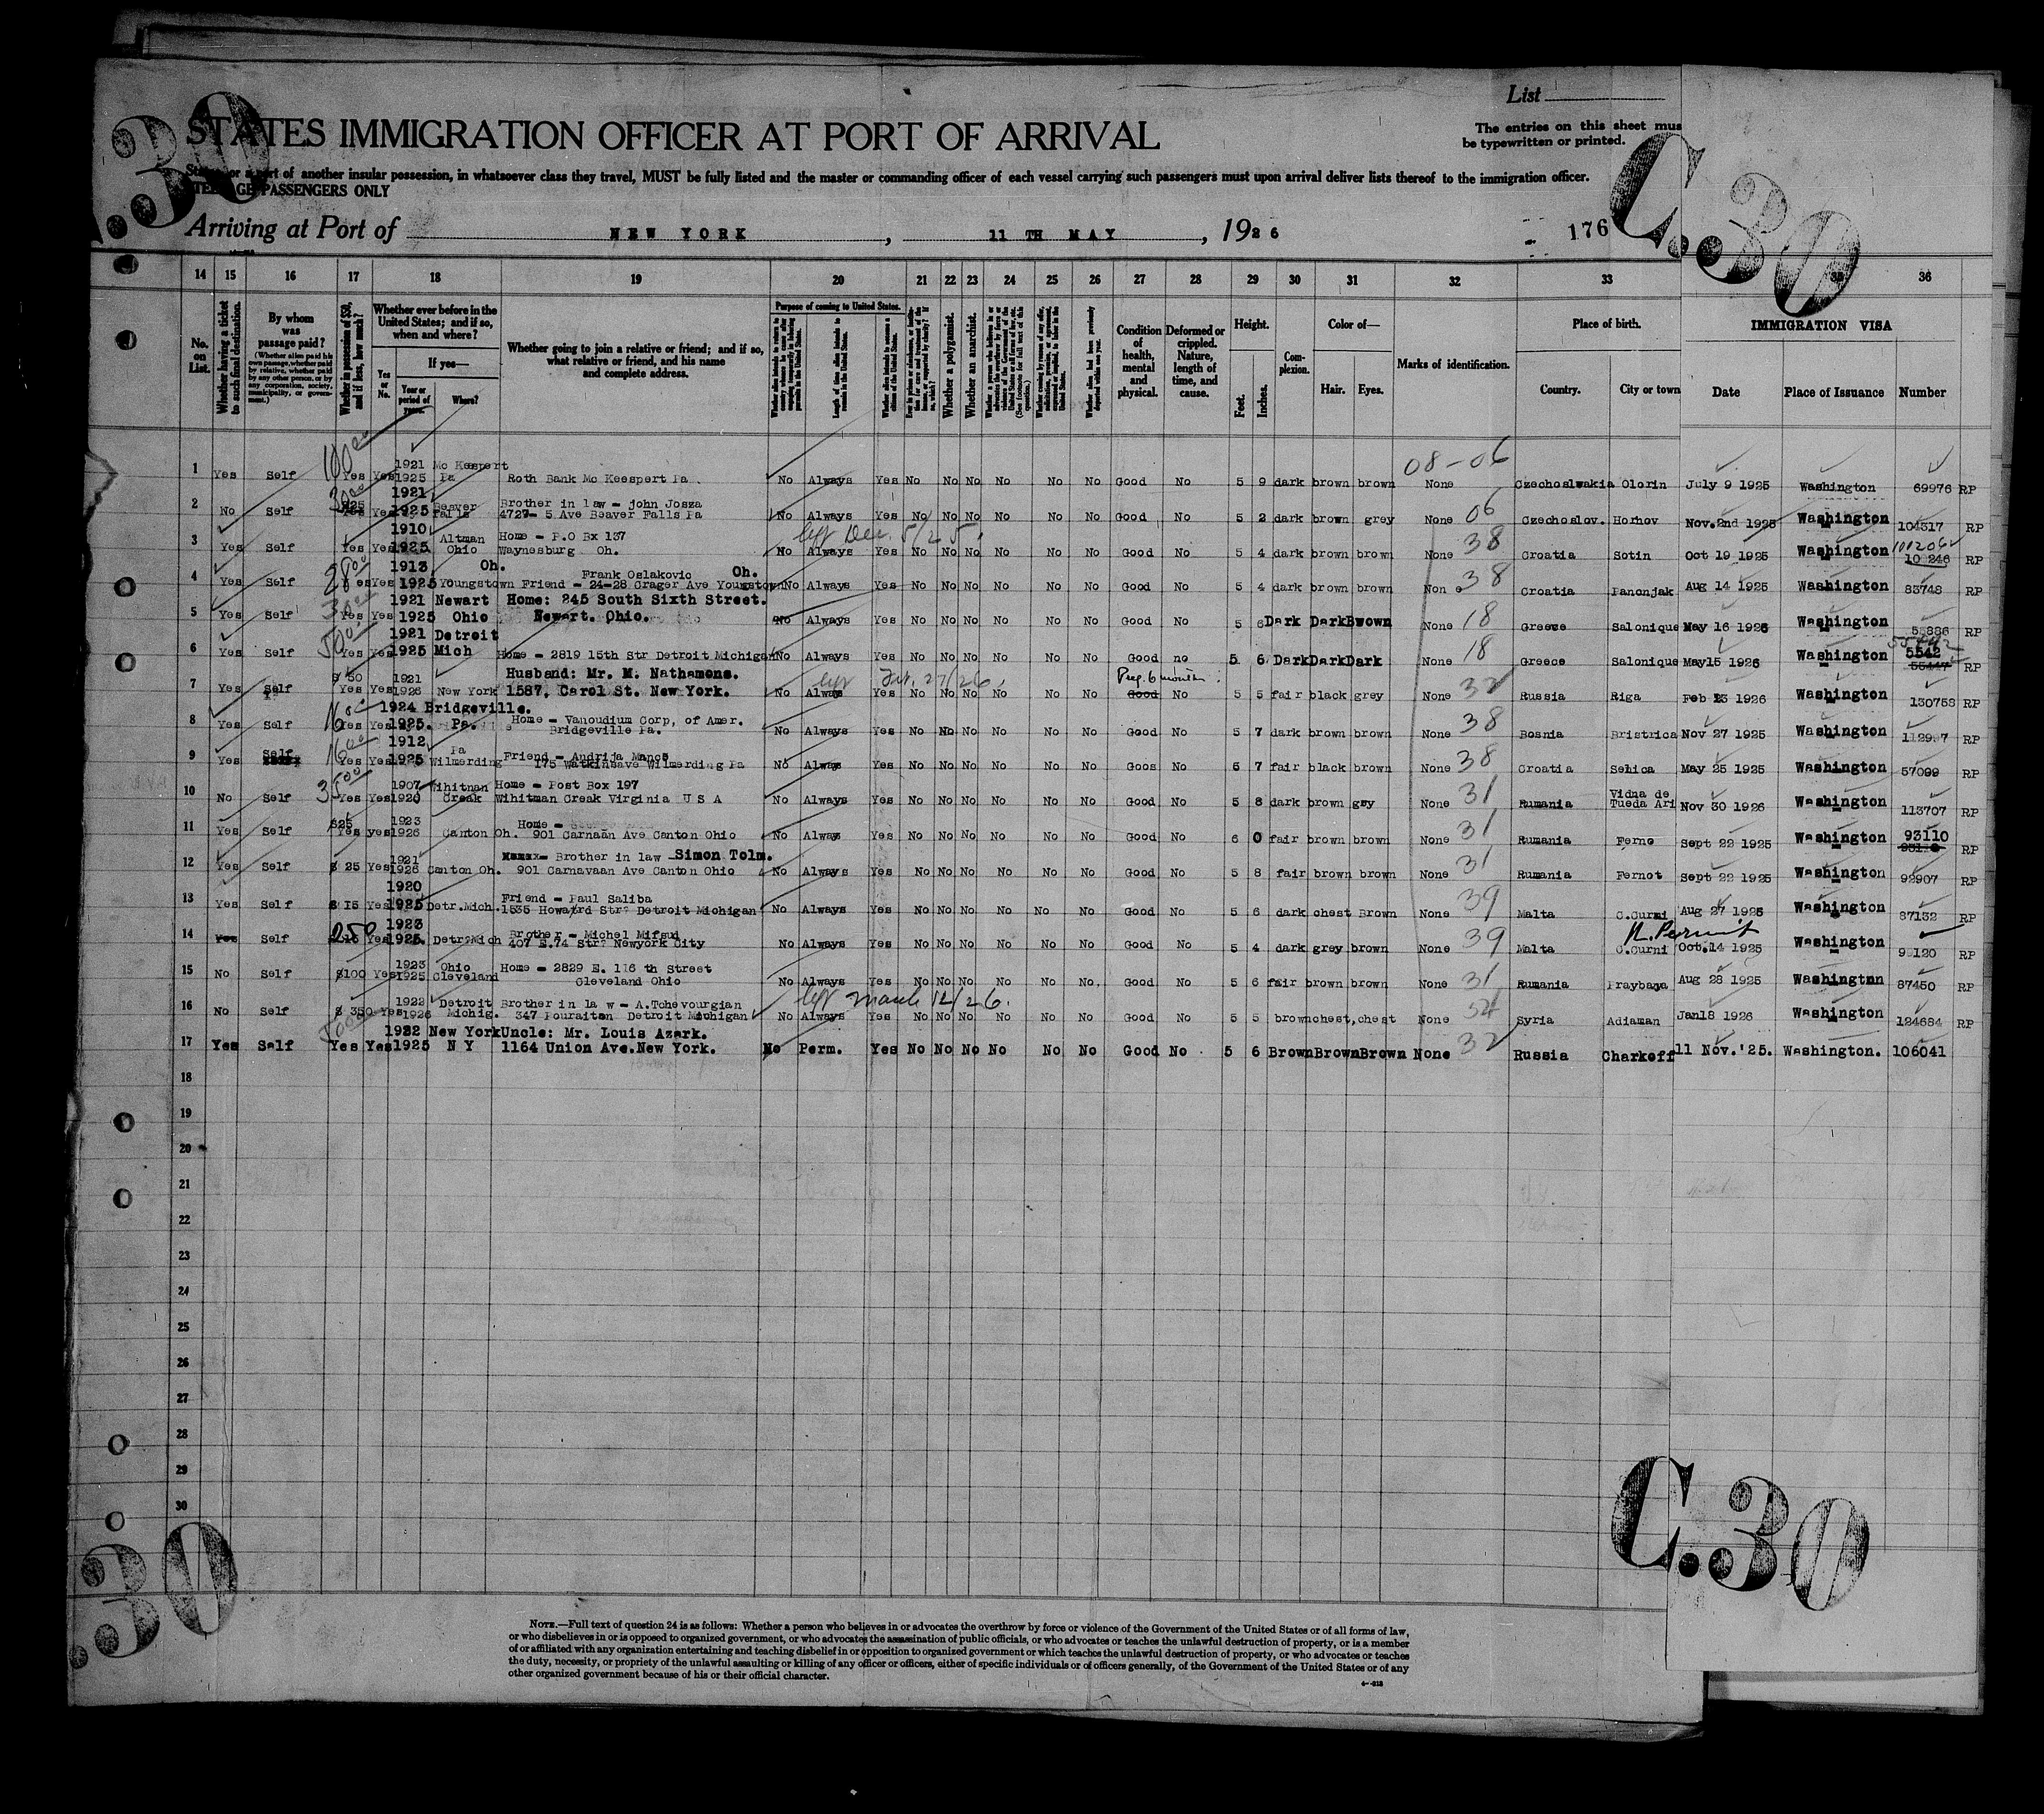 List
STATES IMMIGRATION OFFICER AT PORT OF ARRIVAL
The entries on this sheet mus
be typewritten or printed.
or a port of another insular possession, in whatsoever class they travel, MUST be fully listed and the master or commanding officer of each vessel carrying such passengers must upon arrival deliver lists thereof to the immigration officer.
PASSENGERS ONLY
Arriving at Port of NEW YORK, 11 TH MAY, 1926
176
C.30
14 15 16 17 18 19 20 21 22 23 24 25 26 27 28 29 30 31 32 33 36
No. on List.
Whether having a ticket to such final destination.
By whom was passage paid?
(Whether alien paid his own passage, whether paid by relative, whether paid by any other person, or by any corporation, society, municipality, or government.)
Whether in possession of $50, and if less, how much?
Whether ever before in the United States; and if so, when and where?
Yes or No.
If yes—
Year or period of years.
Where?
Whether going to join a relative or friend; and if so, what relative or friend, and his name and complete address.
Purpose of coming to United States.
Length of time alien intends to remain in the United States.
Whether alien intends to become a citizen of the United States.
Whether a polygamist.
Whether an anarchist.
Condition of health, mental and physical.
Deformed or crippled. Nature, length of time, and cause.
Height.
Feet. Inches.
Complexion.
Color of—
Hair. Eyes.
Marks of identification.
Place of birth.
Country. City or town
IMMIGRATION VISA
Date Place of Issuance Number
1 Yes Self 100 Yes Yes 1921 1925 Mc Keespert Pa Roth Bank Mc Keespert Pa. No Always Yes No No No No No No Good No 5 9 dark brown brown None 08-06 Czechoslwakia Olorin July 9 1925 Washington 69976 RP
2 No Self Yes Yes 1921 1925 Beaver Falls Brother in law - john Josza 4727- 5 Ave Beaver Falls Pa No Always Yes No No No No No No Good No 5 2 dark brown grey None 06 Czechoslov. Horhov Nov.2nd 1925 Washington 104317 RP
3 Yes Self Yes Yes 1910 1925 Altman Ohio Home - P.O Bx 137 Waynesburg Oh. No Always left Dec. 5/25. Yes No No No No No No Good No 5 4 dark brown brown None 38 Croatia Sotin Oct 19 1925 Washington 101206 10 246 RP
4 Yes Self Yes Yes 1913 1925 Oh. Youngstown Frank Oslakovic Oh. Friend - 24-28 Crager Ave Youngstown No Always Yes No No No No No No Good No 5 4 dark brown brown None 38 Croatia Panonjak Aug 14 1925 Washington 83748 RP
5 Yes Self Yes Yes 1921 1925 Newart Ohio Home: 245 South Sixth Street. Newart. Ohio. No Always Yes No No No No No No Good No 5 6 Dark Dark Brown None 18 Greece Salonique May 16 1925 Washington 55886 RP
6 Yes Self Yes Yes 1921 1925 Detroit Mich Home - 2819 15th Str Detroit Michigan No Always Yes No No No No No No Good no 5 6 Dark Dark Dark None 18 Greece Salonique May15 1926 Washington 5542 55447 RP
7 Yes Self $ 50 Yes Yes 1921 1926 New York Husband: Mr. M. Nathamons. 1587, Carol St. New York. No Always left Feb. 27/26. Yes No No No No No No Preg. 6 months. Good No 5 5 fair black grey None 32 Russia Riga Feb 23 1926 Washington 130758 RP
8 Yes Self Yes Yes 1924 1925. Bridgeville. Pa. Home - Vanoudium Corp, of Amer. Bridgeville Pa. No Always Yes No No No No No No Good No 5 7 dark brown brown None 38 Bosnia Bristrica Nov 27 1925 Washington 112997 RP
9 Yes Self Yes Yes 1912 1925 Pa Wilmerding Friend - Andrija Manos 175 Watkinsave Wilmerding Pa No Always Yes No No No No No No Goos No 5 7 fair black brown None 38 Croatia Selica May 25 1925 Washington 57099 RP
10 No Self Yes Yes 1907 1920 Wihitnan Creak Home - Post Box 197 Wihitman Creak Virginia U S A No Always Yes No No No No No No Good No 5 8 dark brown gey None 31 Rumania Vidna de Tueda Ari Nov 30 1926 Washington 113707 RP
11 Yes Self $25 Yes yes 1923 1926 Canton Oh. Home - 901 Carnaan Ave Canton Ohio No Always Yes No No No No No No Good No 6 0 fair brown brown None 31 Rumania Ferno Sept 22 1925 Washington 93110 RP
12 Yes Self $ 25 Yes 1921 1926 Canton Oh. Brother in law - Simon Tolm. 901 Carnavaan Ave Canton Ohio No Always Yes No No No No No No Good No 5 8 fair brown brown None 31 Rumania Fernot Sept 22 1925 Washington 92907 RP
13 Yes Self $ 15 Yes 1920 1925 Detr.Mich. Friend - Paul Saliba 1535 Howard Str. Detroit Michigan No Always Yes No No No No No No Good No 5 6 dark chest Brown None 39 Malta C.Curmi Aug 27 1925 Washington 87132 RP
14 Yes Self 250 Yes 1923 1925. Detr.Mich Brother - Michel Mifsud 407 E.74 Str. Newyork City No Always Yes No No No No No No Good No 5 4 dark grey brown None 39 Malta R. Permit C.Curni Oct.14 1925 Washington 99120 RP
15 No Self $100 Yes 1923 1925 Ohio Cleveland Home - 2829 E. 116 th Street Cleveland Ohio No Always Yes No No No No No No. Good No 5 6 fair brown brown None 31 Rumania Praybaya Aug 28 1925 Washington 87450 RP
16 No Self $ 350 Yes 1922 1926 Detroit Michig. Brother in law - A.Tchevourgian 347 Pouraiton Detroit Michigan No Always left March 12/26. Yes No No No No No No Good No 5 5 brown chest, chest None 54 Syria Adiaman Jan18 1926 Washington 124684 RP
17 Yes Self Yes Yes 1922 1925 New York N Y Uncle: Mr. Louis Azark. 1164 Union Ave.New York. No Perm. Yes No No No No No No Good No 5 6 Brown Brown Brown None 32 Russia Charkeff 11 Nov.'25. Washington. 106041
18
19
20
21
22
23
24
25
26
27
28
29
30
C.30
30
NOTE.—Full text of question 24 is as follows: Whether a person who believes in or advocates the overthrow by force or violence of the Government of the United States or of all forms of law,
or who disbelieves in or is opposed to organized government, or who advocates the assassination of public officials, or who advocates or teaches the unlawful destruction of property, or is a member
of or affiliated with any organization entertaining and teaching disbelief in or opposition to organized government or which teaches the unlawful destruction of property, or who advocates or teaches
the duty, necessity, or propriety of the unlawful assaulting or killing of any officer or officers, either of specific individuals or of officers generally, of the Government of the United States or of any
other organized government because of his or their official character.